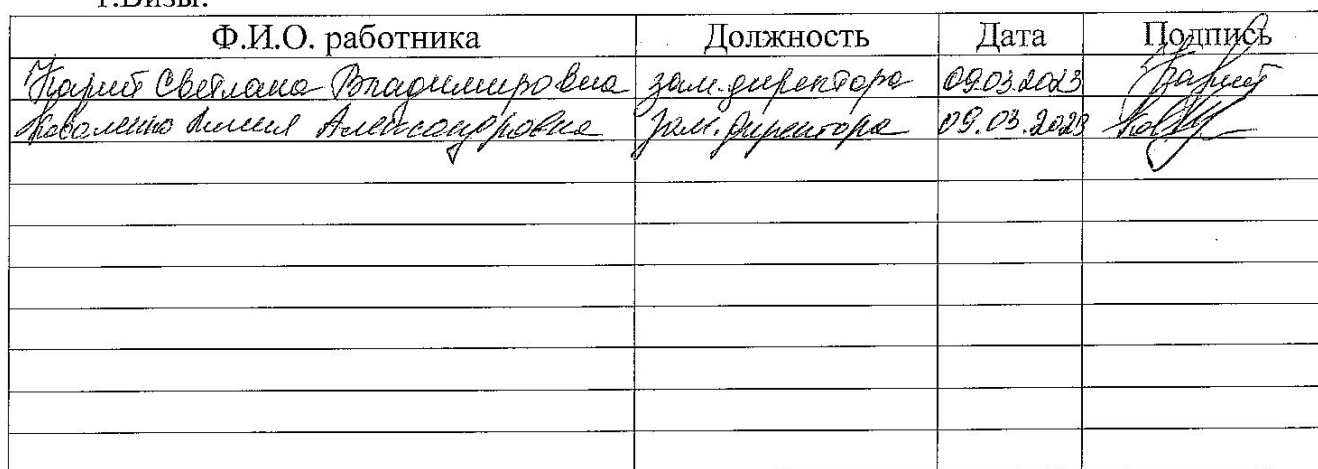 1.Визы:
Ф.И.О. работника Должность Дата Подпись
Светлана Владимировна зам.директора 09.03.2023
Коваленко Лилия Александровна зам.директора 09.03.2023